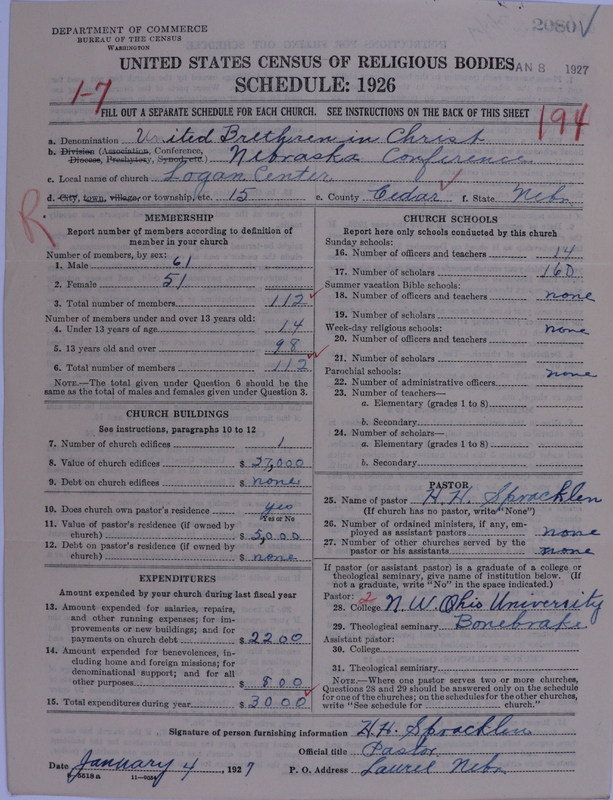 DEPARTMENT OF COMMERCE
BUREAU OF THE CENSUS
WASHINGTON
20801
UNITED STATES CENSUS OF RELIGIOUS BODIES
JAN 8 1927
SCHEDULE: 1926
1-7
FILL OUT A SEPARATE SCHEDULE FOR EACH CHURCH. SEE INSTRUCTIONS ON THE BACK OF THIS SHEET
194
a. Denomination United Brethren in Christ
b. Division (Association, Conference, Diocese, Presbytery, Synod, etc.) Nebraska Conference
c. Local name of church Logan Center
d. City, town, village, or township, etc. 15 e. County Cedar f. State Nebr
R
MEMBERSHIP
Report number of members according to definition of
member in your church
Number of members, by sex:
1. Male 61
2. Female 51
3. Total number of members 112
Number of members under and over 13 years old:
4. Under 13 years of age 14
5. 13 years old and over 98
6. Total number of members 112
NOTE.—The total given under Question 6 should be
same as the total of males and females given under Question 3.
CHURCH BUILDINGS
See instructions, paragraphs 10 to 12
7. Number of church edifices 1
8. Value of church edifices $ 27,000
9. Debt on church edifices $ none
10. Does church own pastor's residence yes
Yes or No
11. Value of pastor's residence (if owned by
church) $ 5,000
12. Debt on pastor's residence (if owned by
church) $ none
EXPENDITURES
Amount expended by your church during last fiscal year
13. Amount expended for salaries, repairs,
and other running expenses; for im-
provements or new buildings; and for
payments on church debt $ 2200
14. Amount expended for benevolences, in-
cluding home and foreign missions; for
denominational support; and for all
other purposes $ 800
15. Total expenditures during year $ 3000
CHURCH SCHOOLS
Report here only schools conducted by this church
Sunday schools:
16. Number of officers and teachers 14
17. Number of scholars 160
Summer vacation Bible schools:
18. Number of officers and teachers none
19. Number of scholars
Week-day religious schools: none
20. Number of officers and teachers
21. Number of scholars
Parochial schools: none
22. Number of administrative officers
23. Number of teachers—
a. Elementary (grades 1 to 8)
b. Secondary
24. Number of scholars—
a. Elementary (grades 1 to 8)
b. Secondary
PASTOR
25. Name of pastor H. H. Spracklen
(If church has no pastor, write "None")
26. Number of ordained ministers, if any, em-
ployed as assistant pastors none
27. Number of other churches served by the
pastor or his assistants none
If pastor (or assistant pastor) is a graduate of a college or
theological seminary, give name of institution below. (If
not a graduate, write "No" in the space indicated.)
Pastor: 2
28. College N. W. Ohio University
29. Theological seminary Bonebrake
Assistant pastor:
30. College
31. Theological seminary
NOTE.—Where one pastor serves two or more churches,
Questions 28 and 29 should be answered only on the schedule
for one of the churches; on the schedules for the other churches,
write "See schedule for church."
Signature of person furnishing information H. H. Spracklen
Official title Pastor
Date January 4, 1927 P. O. Address Laurel Nebr
8-5518a 11-9034